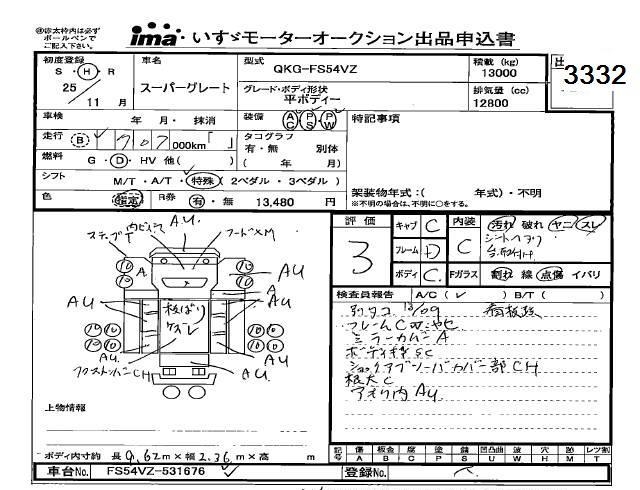 ㊟太枠内は必ず
ボールペンで
ご記入下さい。
ima いすゞモーターオークション出品申込書
初度登録 S・H・R 25/11月
車名 スーパーグレート
型式 QKG-FS54VZ
積載(kg) 13000
3332
グレード・ボディ形状 平ボディー
排気量(cc) 12800
車検 年 月・ 抹消
装備 AC PS PW
特記事項
走行 B 707,000km「 」
タコグラフ 有・無 別体 ( 年 月)
燃料 G・D・HV 他( )
シフト M/T・A/T・特殊(2ペダル・3ペダル)
架装物年式:( 年式)・不明
※不明の場合は、不明に○をする。
色 指定 R券 有・無 13,480 円
AU.
ステップT
フードXM
A
AU
AU
AU
板ばり
ケズレ
AU
AU.
CH
AU.
10 10 10 10
上物情報
ボディ内寸約 長9.62m×幅2.36m×高 m
車台No. FS54VZ-531676
評価 3
キャブ C
フレーム D
ボディ C
内装 C
汚れ 破れ ヤニ スレ
シートヘタリ
Fガラス 割れ 線 点傷 イバリ
検査員報告 A/C(✓) B/T( )
フレームC
ミラーカバーA
ボディサビSC
ショックアブソーバカバー部CH
根太C
アオリ内AU
記号 傷A 板金B 腐C 塗P 錆S 凹凸曲U 波W 穴H 跡M レツ割T
登録No.